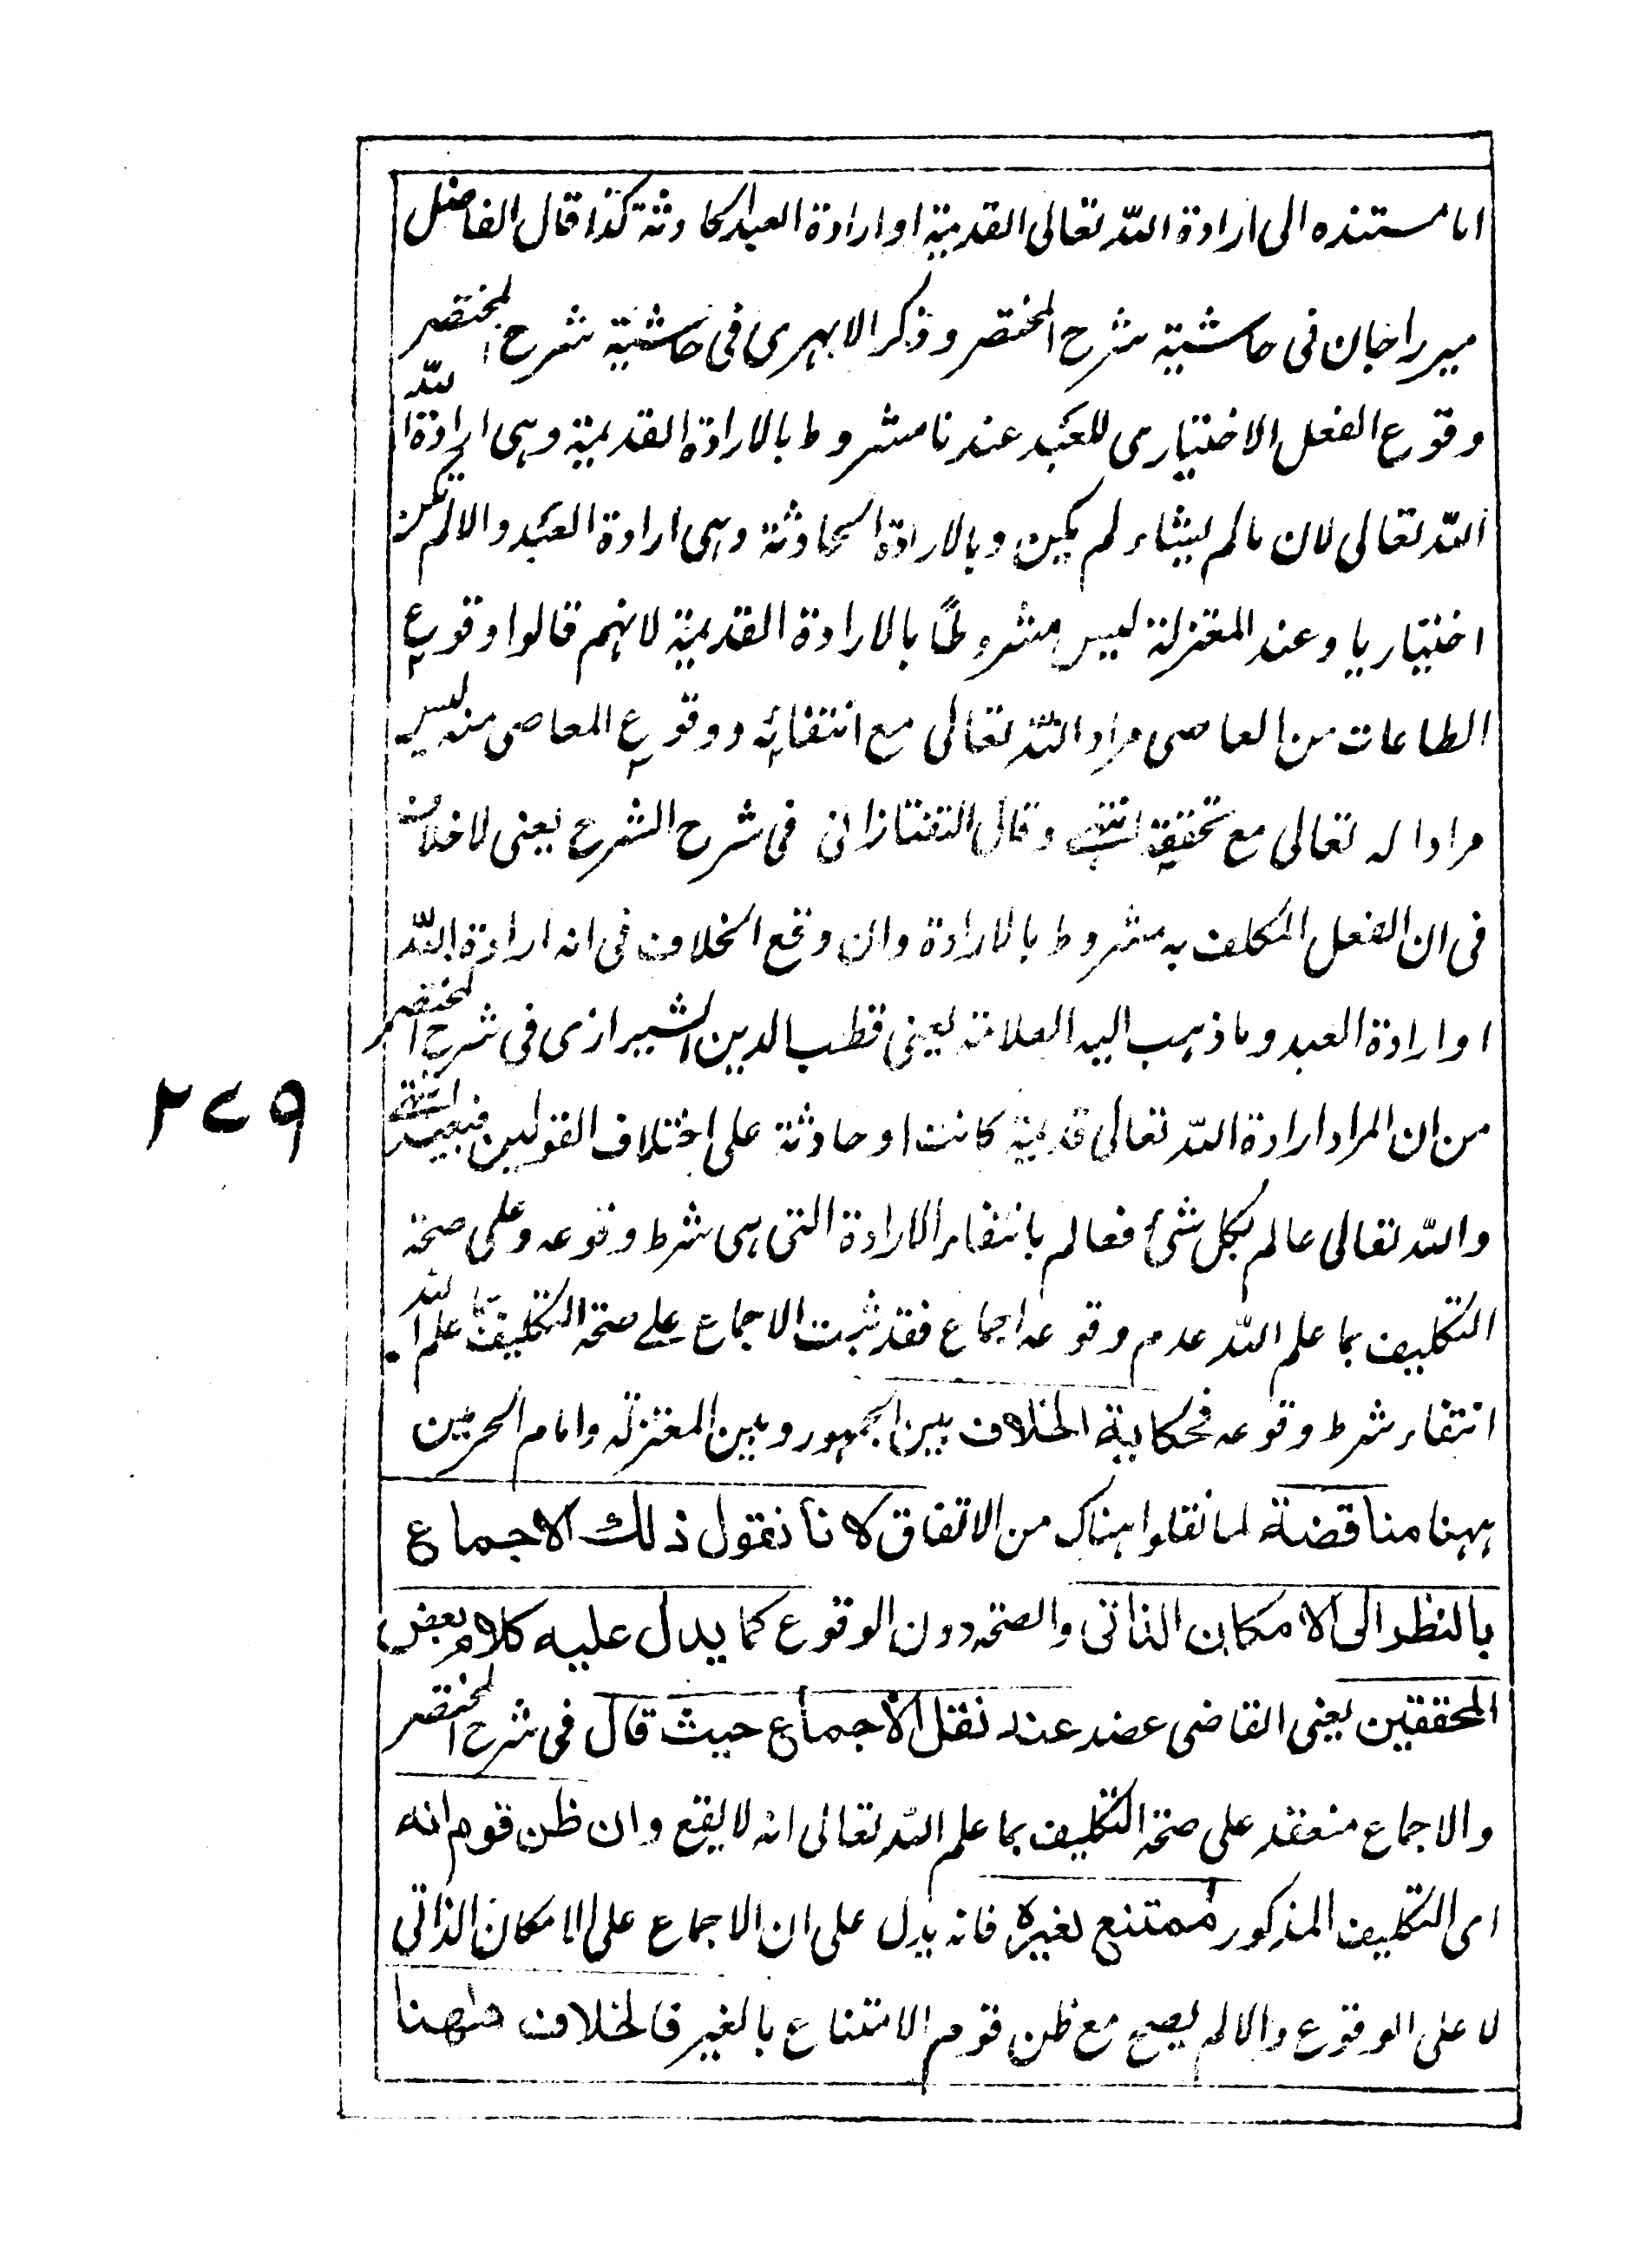 اما مستنده الى ارادة الله تعالى القديمة او ارادة العبد الحادثة كذا قال الفاضل
ميرزاجان فى حاشية شرح المختصر وذكر الابهرى فى حاشية شرح المختصر
وقوع الفعل الاختيارى للعبد عندنا مشروط بالارادة القديمة وهى ارادة الله
الله تعالى لان مالم يشاء لم يكن وبالارادة الحادثة وهى ارادة العبد والا لم يكن
اختياريا وعند المعتزلة ليس مشروطًا بالارادة القديمة لانهم قالوا وقوع
الطاعات من العاصى مراد الله تعالى مع انتفائه ووقوع المعاصى منه ليس
مرادا له تعالى مع تحققه انتهى وقال التفتازانى فى شرح الشرح يعنى لا خلاف
فى ان الفعل المكلف به مشروط بالارادة وان وقع الخلاف فى انه ارادة الله
او ارادة العبد وما ذهب اليه العلامة يعنى قطب الدين الشيرازى فى شرح المختصر
من ان المراد ارادة الله تعالى قديمة كانت او حادثة على اختلاف القولين فبعيد انتهى
والله تعالى عالم بكل شئ فعالم بانتفاء الارادة التى هى شرط وقوعه وعلى صحة
التكليف بما علم الله عدم وقوعه اجماع فقد ثبت الاجماع على صحة التكليف بما علم الله
انتفاء شرط وقوعه فحكاية الخلاف بين الجمهور وبين المعتزلة وامام الحرمين
ههنا مناقضة لما نقلوا هناك من الاتفاق لانا نقول ذلك الاجماع
بالنظر الى الامكان الذاتى والصحة دون الوقوع كما يدل عليه كلام بعض
المحققين يعنى القاضى عضد عند نقل الاجماع حيث قال فى شرح المختصر
والاجماع منعقد على صحة التكليف بما علم الله تعالى انه لا يقع وان ظن قوم انه
اى التكليف المذكور ممتنع لغيره فانه يدل على ان الاجماع على الامكان الذاتى
لا على الوقوع والا لم يصح مع ظن قوم الامتناع بالغير فالخلاف ههنا
٢٧٩